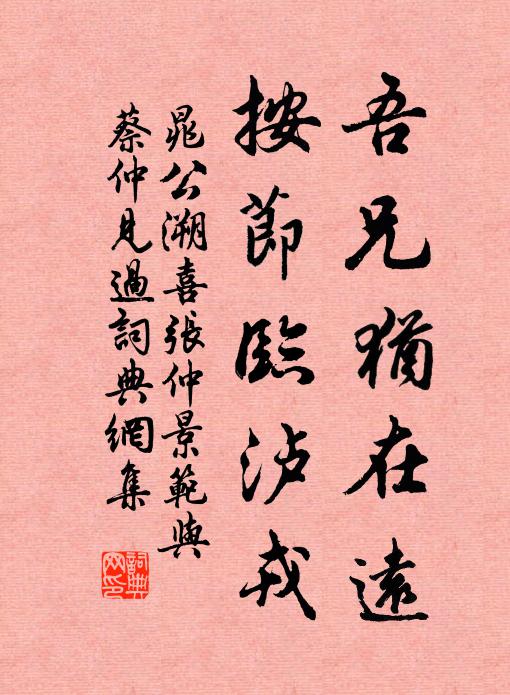 吾兄犹在遠
按節臨泸戎
晁公溯喜張仲景範與
蔡仲見過詞典網集
詞典网印